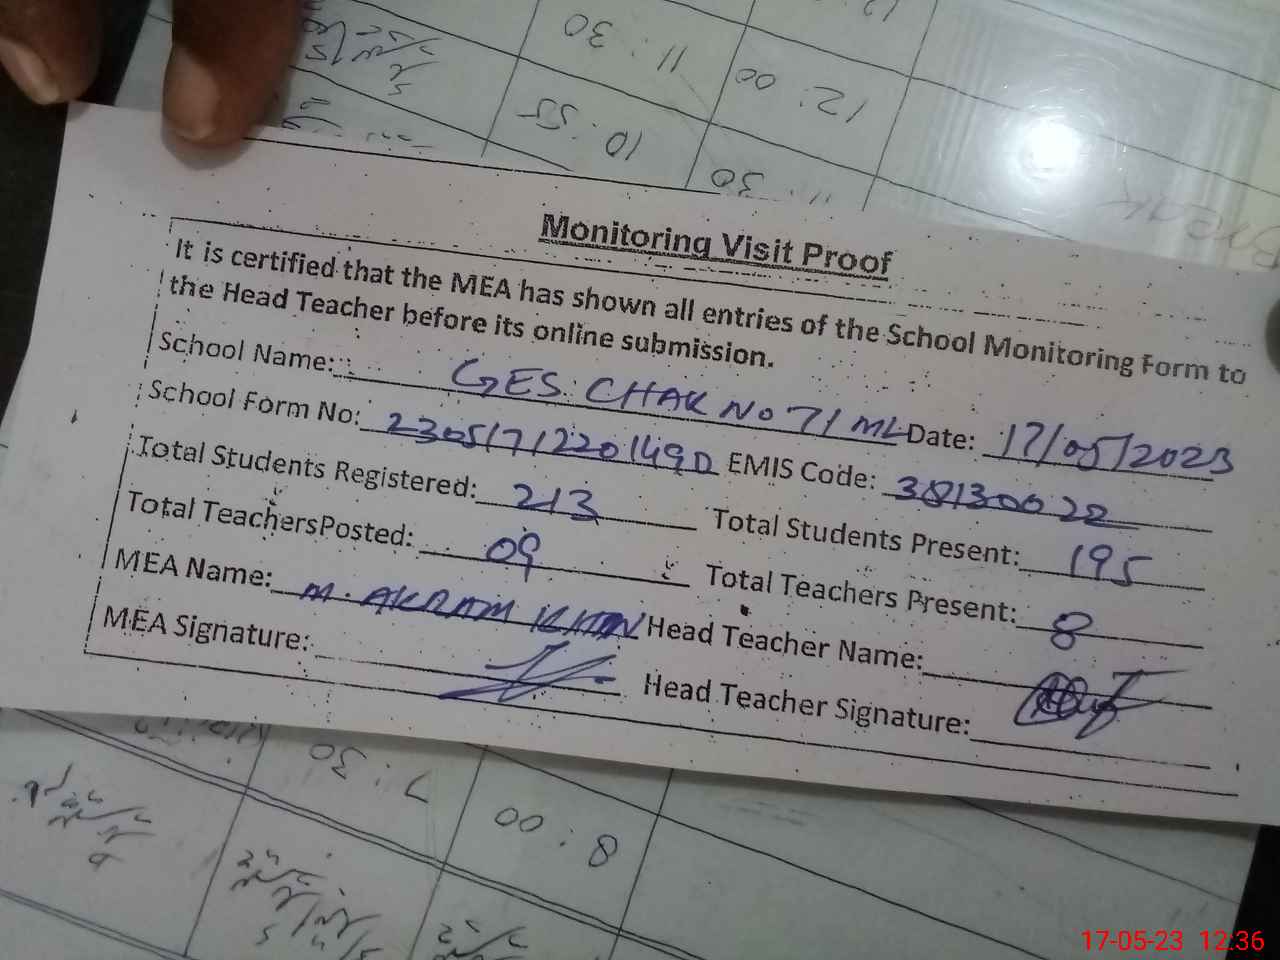 Monitoring Visit Proof
It is certified that the MEA has shown all entries of the School Monitoring Form to
the Head Teacher before its online submission.
School Name: GES. CHAK NO 71 ML Date: 17/05/2023
School Form No: EMIS Code: 38130022
Total Students Registered: 213 Total Students Present: 195
Total TeachersPosted: 09 Total Teachers Present: 8
MEA Name: M. AKRAM KHAN Head Teacher Name:
MEA Signature: Head Teacher Signature:
11:30
12:00
10:55
11:30
7:30
8:00
17-05-23 12:36